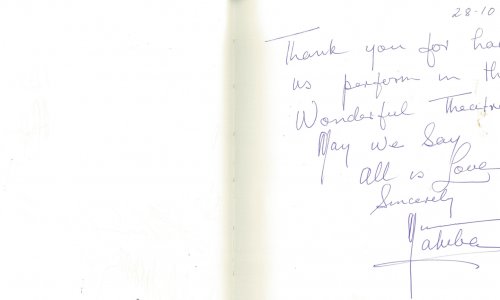 28-10
Thank you for ha
us perform in th
Wonderful Theatre
May we Say
All is Love
Sincerely